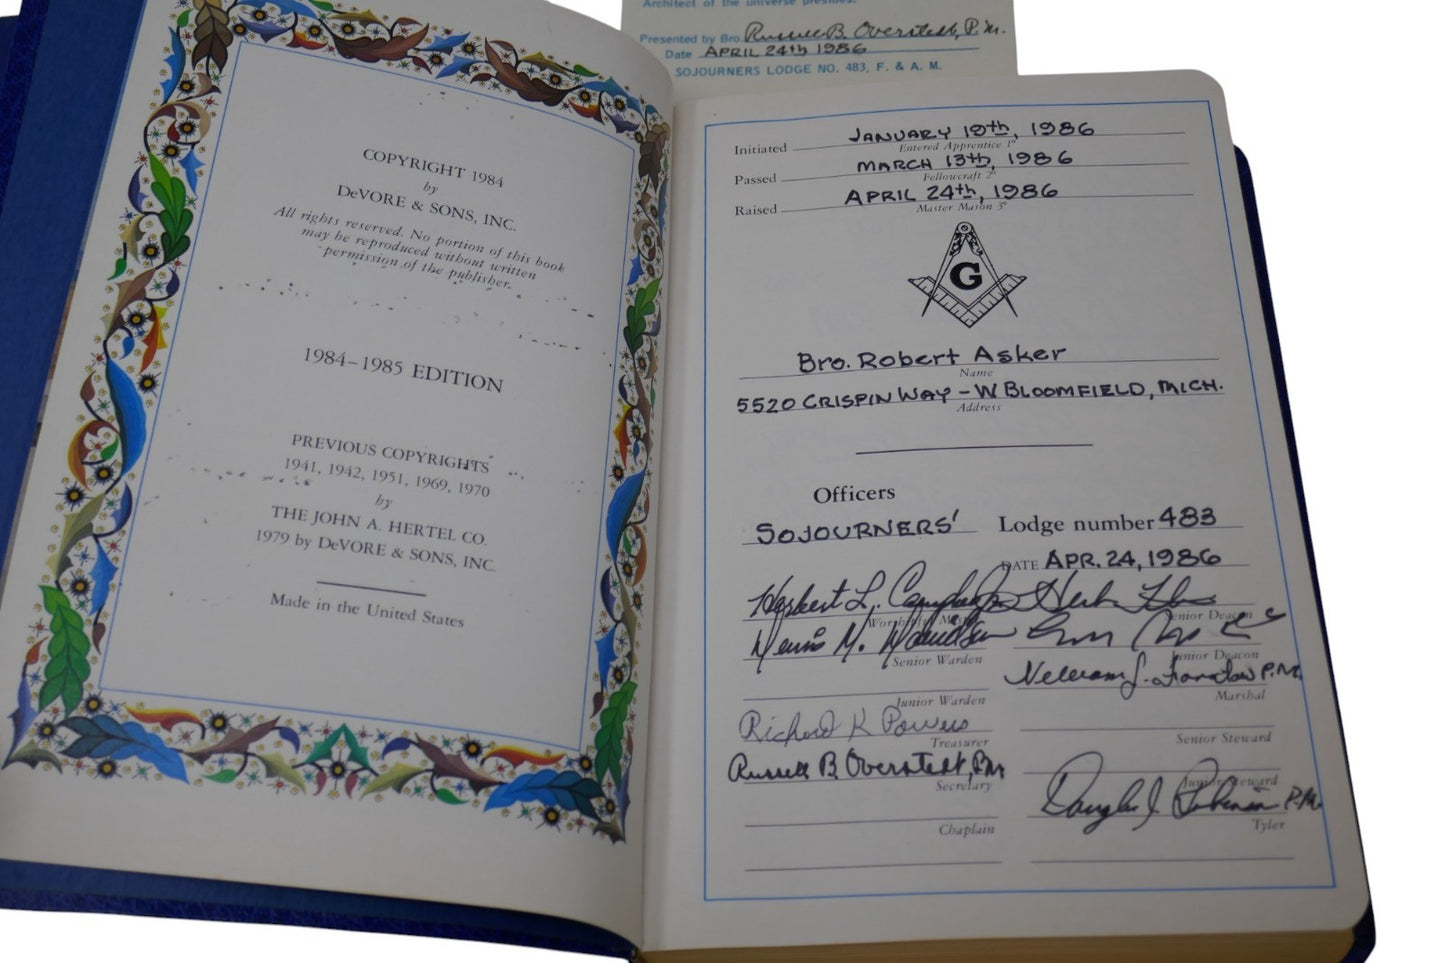 Architect of the universe presides.
Presented by Bro. Russell B. Overstedt, P.M.
Date APRIL 24th 1986
SOJOURNERS LODGE NO. 483, F. & A. M.
COPYRIGHT 1984
by
DeVORE & SONS, INC.
All rights reserved. No portion of this book
may be reproduced without written
permission of the publisher.
1984–1985 EDITION
PREVIOUS COPYRIGHTS
1941, 1942, 1951, 1969, 1970
by
THE JOHN A. HERTEL CO.
1979 by DeVORE & SONS, INC.
Made in the United States
Initiated JANUARY 19th, 1986
Entered Apprentice 1°
Passed MARCH 13th, 1986
Fellowcraft 2°
Raised APRIL 24th, 1986
Master Mason 3°
G
Bro. Robert Asker
Name
5520 CRISPIN WAY - W BLOOMFIELD, MICH.
Address
Officers
SOJOURNERS' Lodge number 483
DATE APR. 24, 1986
Herbert L. Herb
Worshipful Master Senior Deacon
Dennis M.
Senior Warden Junior Deacon
P.M.
Junior Warden Marshal
Richard K Powers
Treasurer Senior Steward
Russell B Overstedt, P.M.
Secretary Junior Steward
Douglas J. Robinson P.M.
Chaplain Tyler